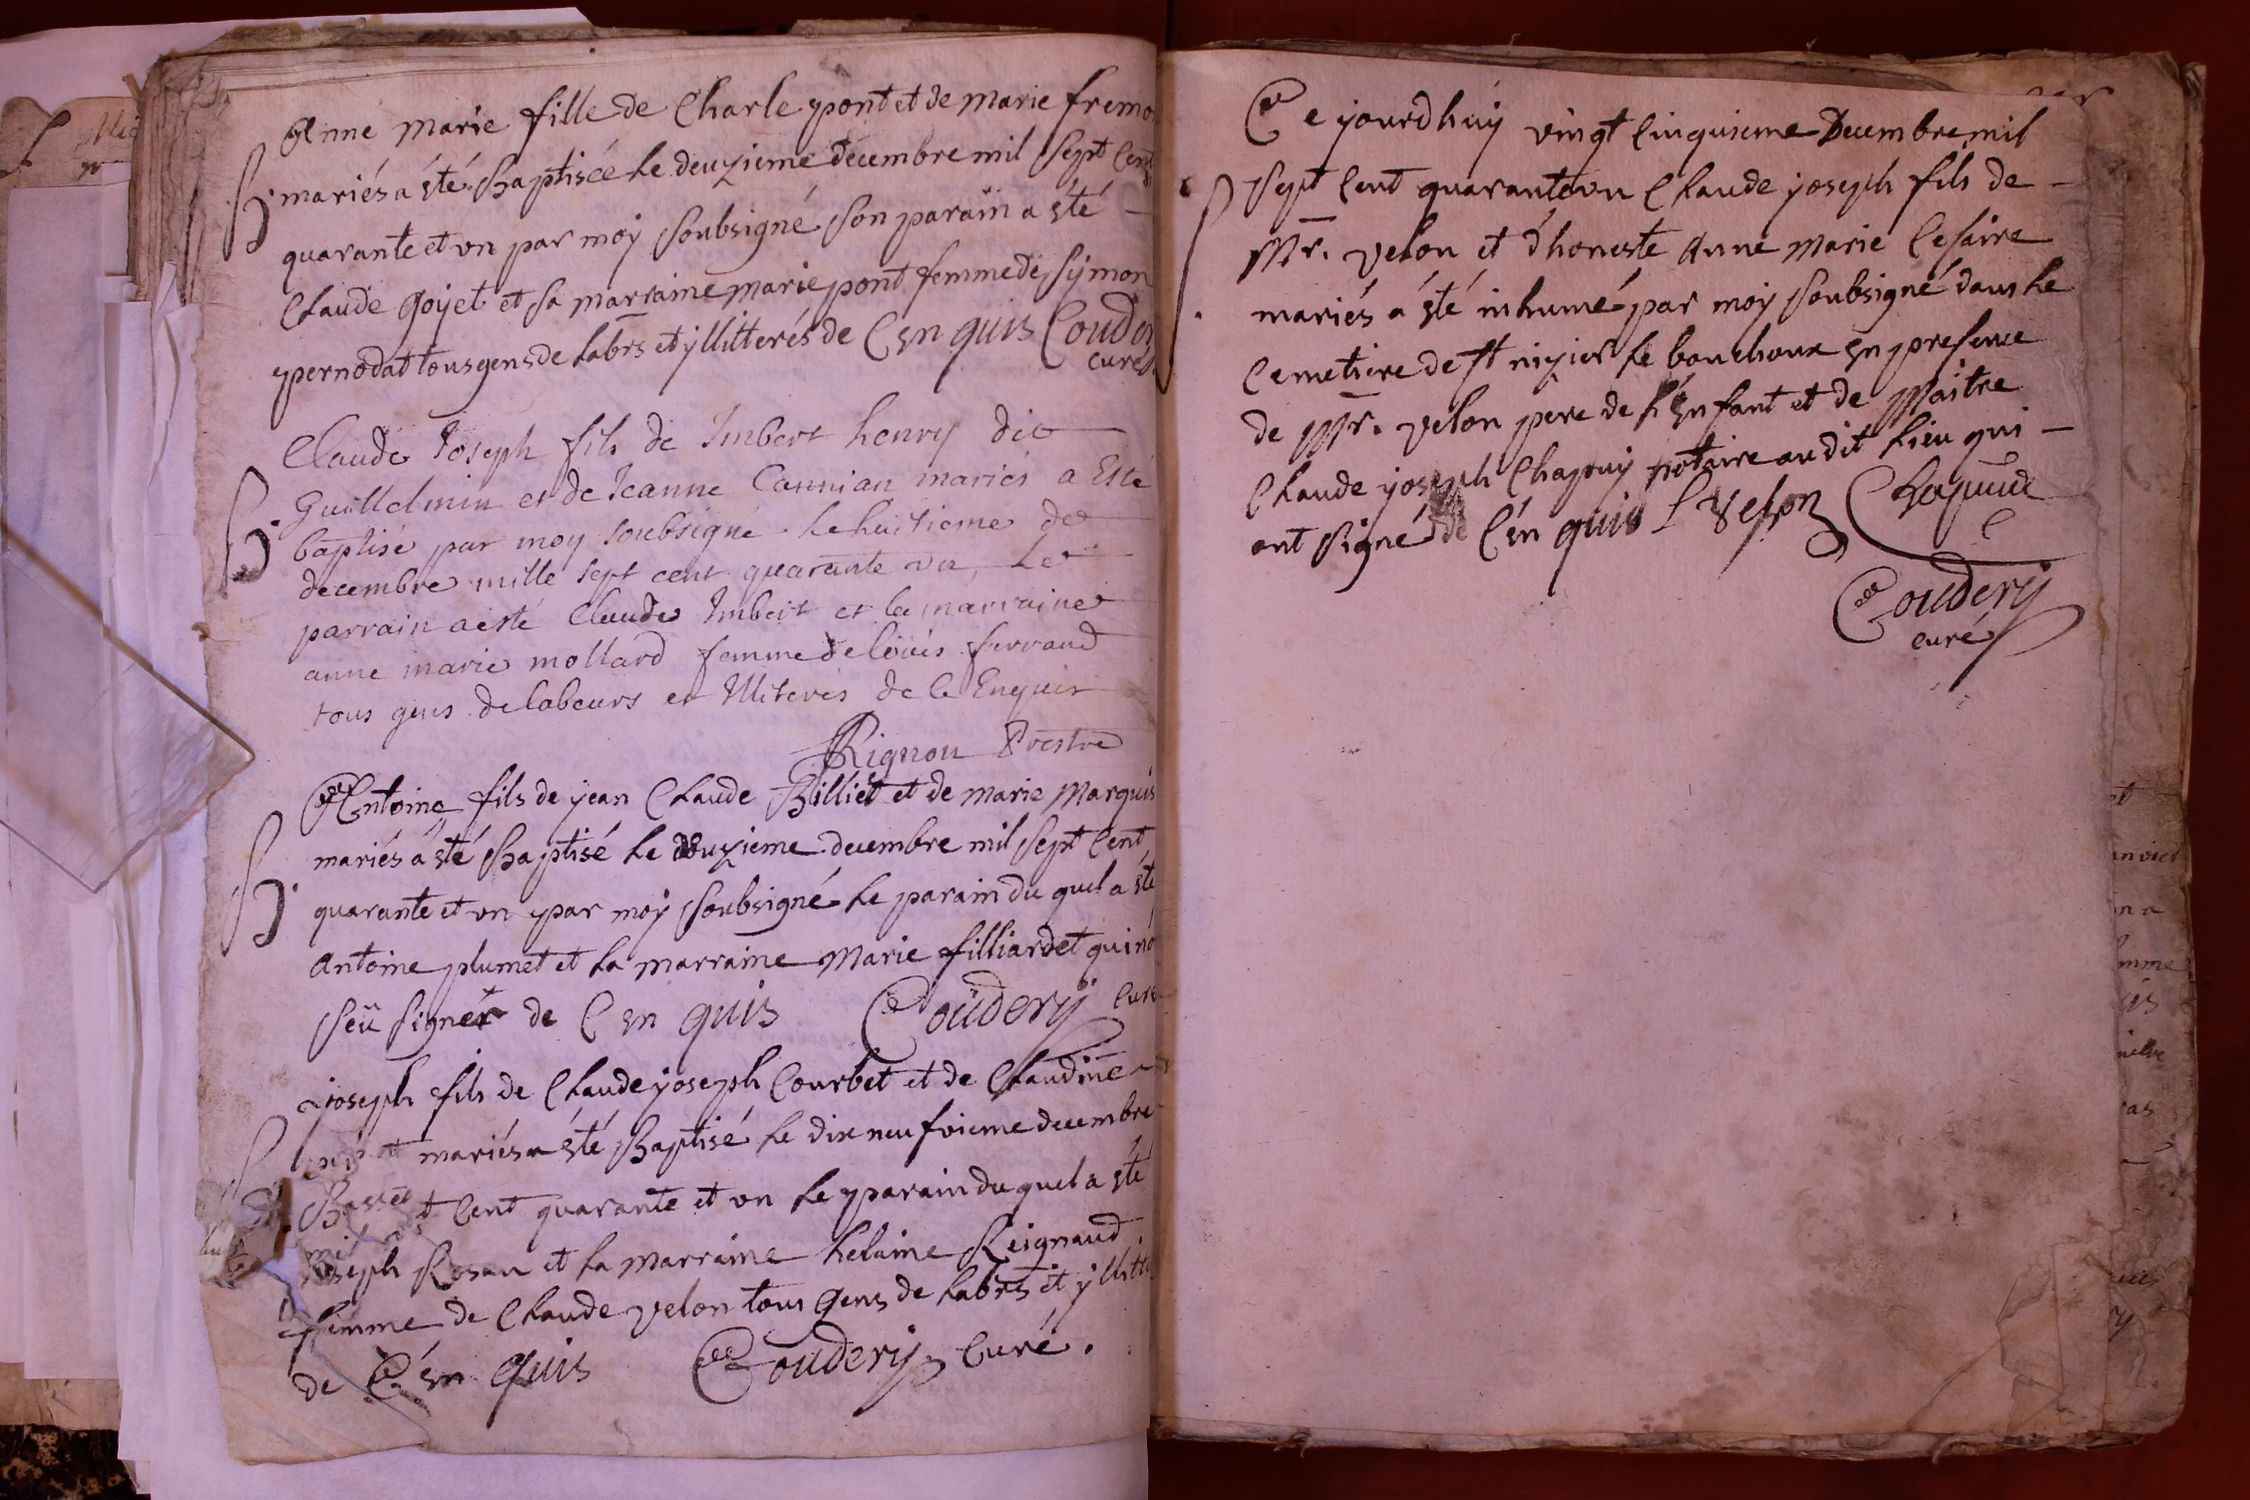 Anne marie fille de Charle pont et de marie fremo
mariés a été Baptisée le deuzieme decembre mil sept cent
quarante et un par moy soubsigné son parain a été
Claude Goyet et sa marraine marie pont femme de symon
pernodat tous gens de labrs et yllitterés de Cenquis Couder
curé
Claude Joseph fils de Imbert henry dit
Guillelmin et de Jeanne mariés a Esté
baptisé par moy soubsigné le huitieme de
decembre mille sept cent quarante un, Le
parrain a esté Claude Imbert et la marraine
anne marie mollard femme de loüis ferraud
tous gens de labeurs et Illiterés de Enquis
Rignon Prestre
Antoine fils de jean Claude Billiet et de marie Marquis
mariés a été Baptisé le douzieme decembre mil sept Cent
quarante et un par moy soubsigné le parain du quel a été
Antoine plumet et la marraine Marie filliardet qui n'o
sçu signer de Cenquis Coudery curé
joseph fils de Claude joseph Courbet et de Claudine
mariés a été Baptisé le dix neufvieme decembre
Cent quarante et un le parain du quel a été
joseph Rosau et la marraine helaine Reignaud
femme de Claude velon tous Gens de labrs et yllitt
de Cenquis Coudery Curé.
Ce jourdhuy vingt Cinquieme Decembre mil
sept Cent quarante un Claude joseph fils de
Mr. velon et d'honeste Anne Marie Cesaire
mariés a été inhumé par moy soubsigné dans le
Cemetiere de st nizier le bouchoux en presence
de Mr. velon pere de l'Enfant et de Maitre
Claude joseph Chapuy notaire au dit lieu qui
ont signé de Cenquis Velon Chapuid
Coudery
curé